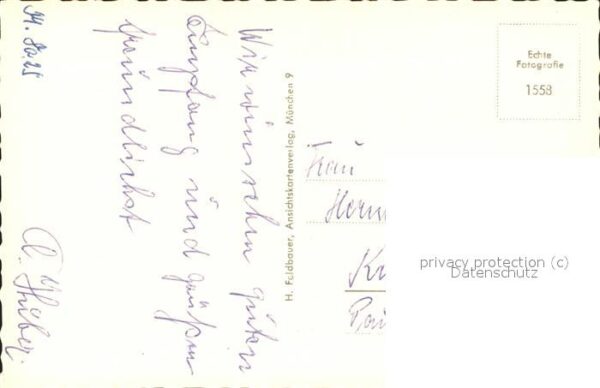 Wir wünschen guten
Empfang und grüßen
freundlichst
A. Huber.
H. Feldbauer, Ansichtskartenverlag, München 9
Echte
Fotografie
1558
Frau
privacy protection (c)
Datenschutz